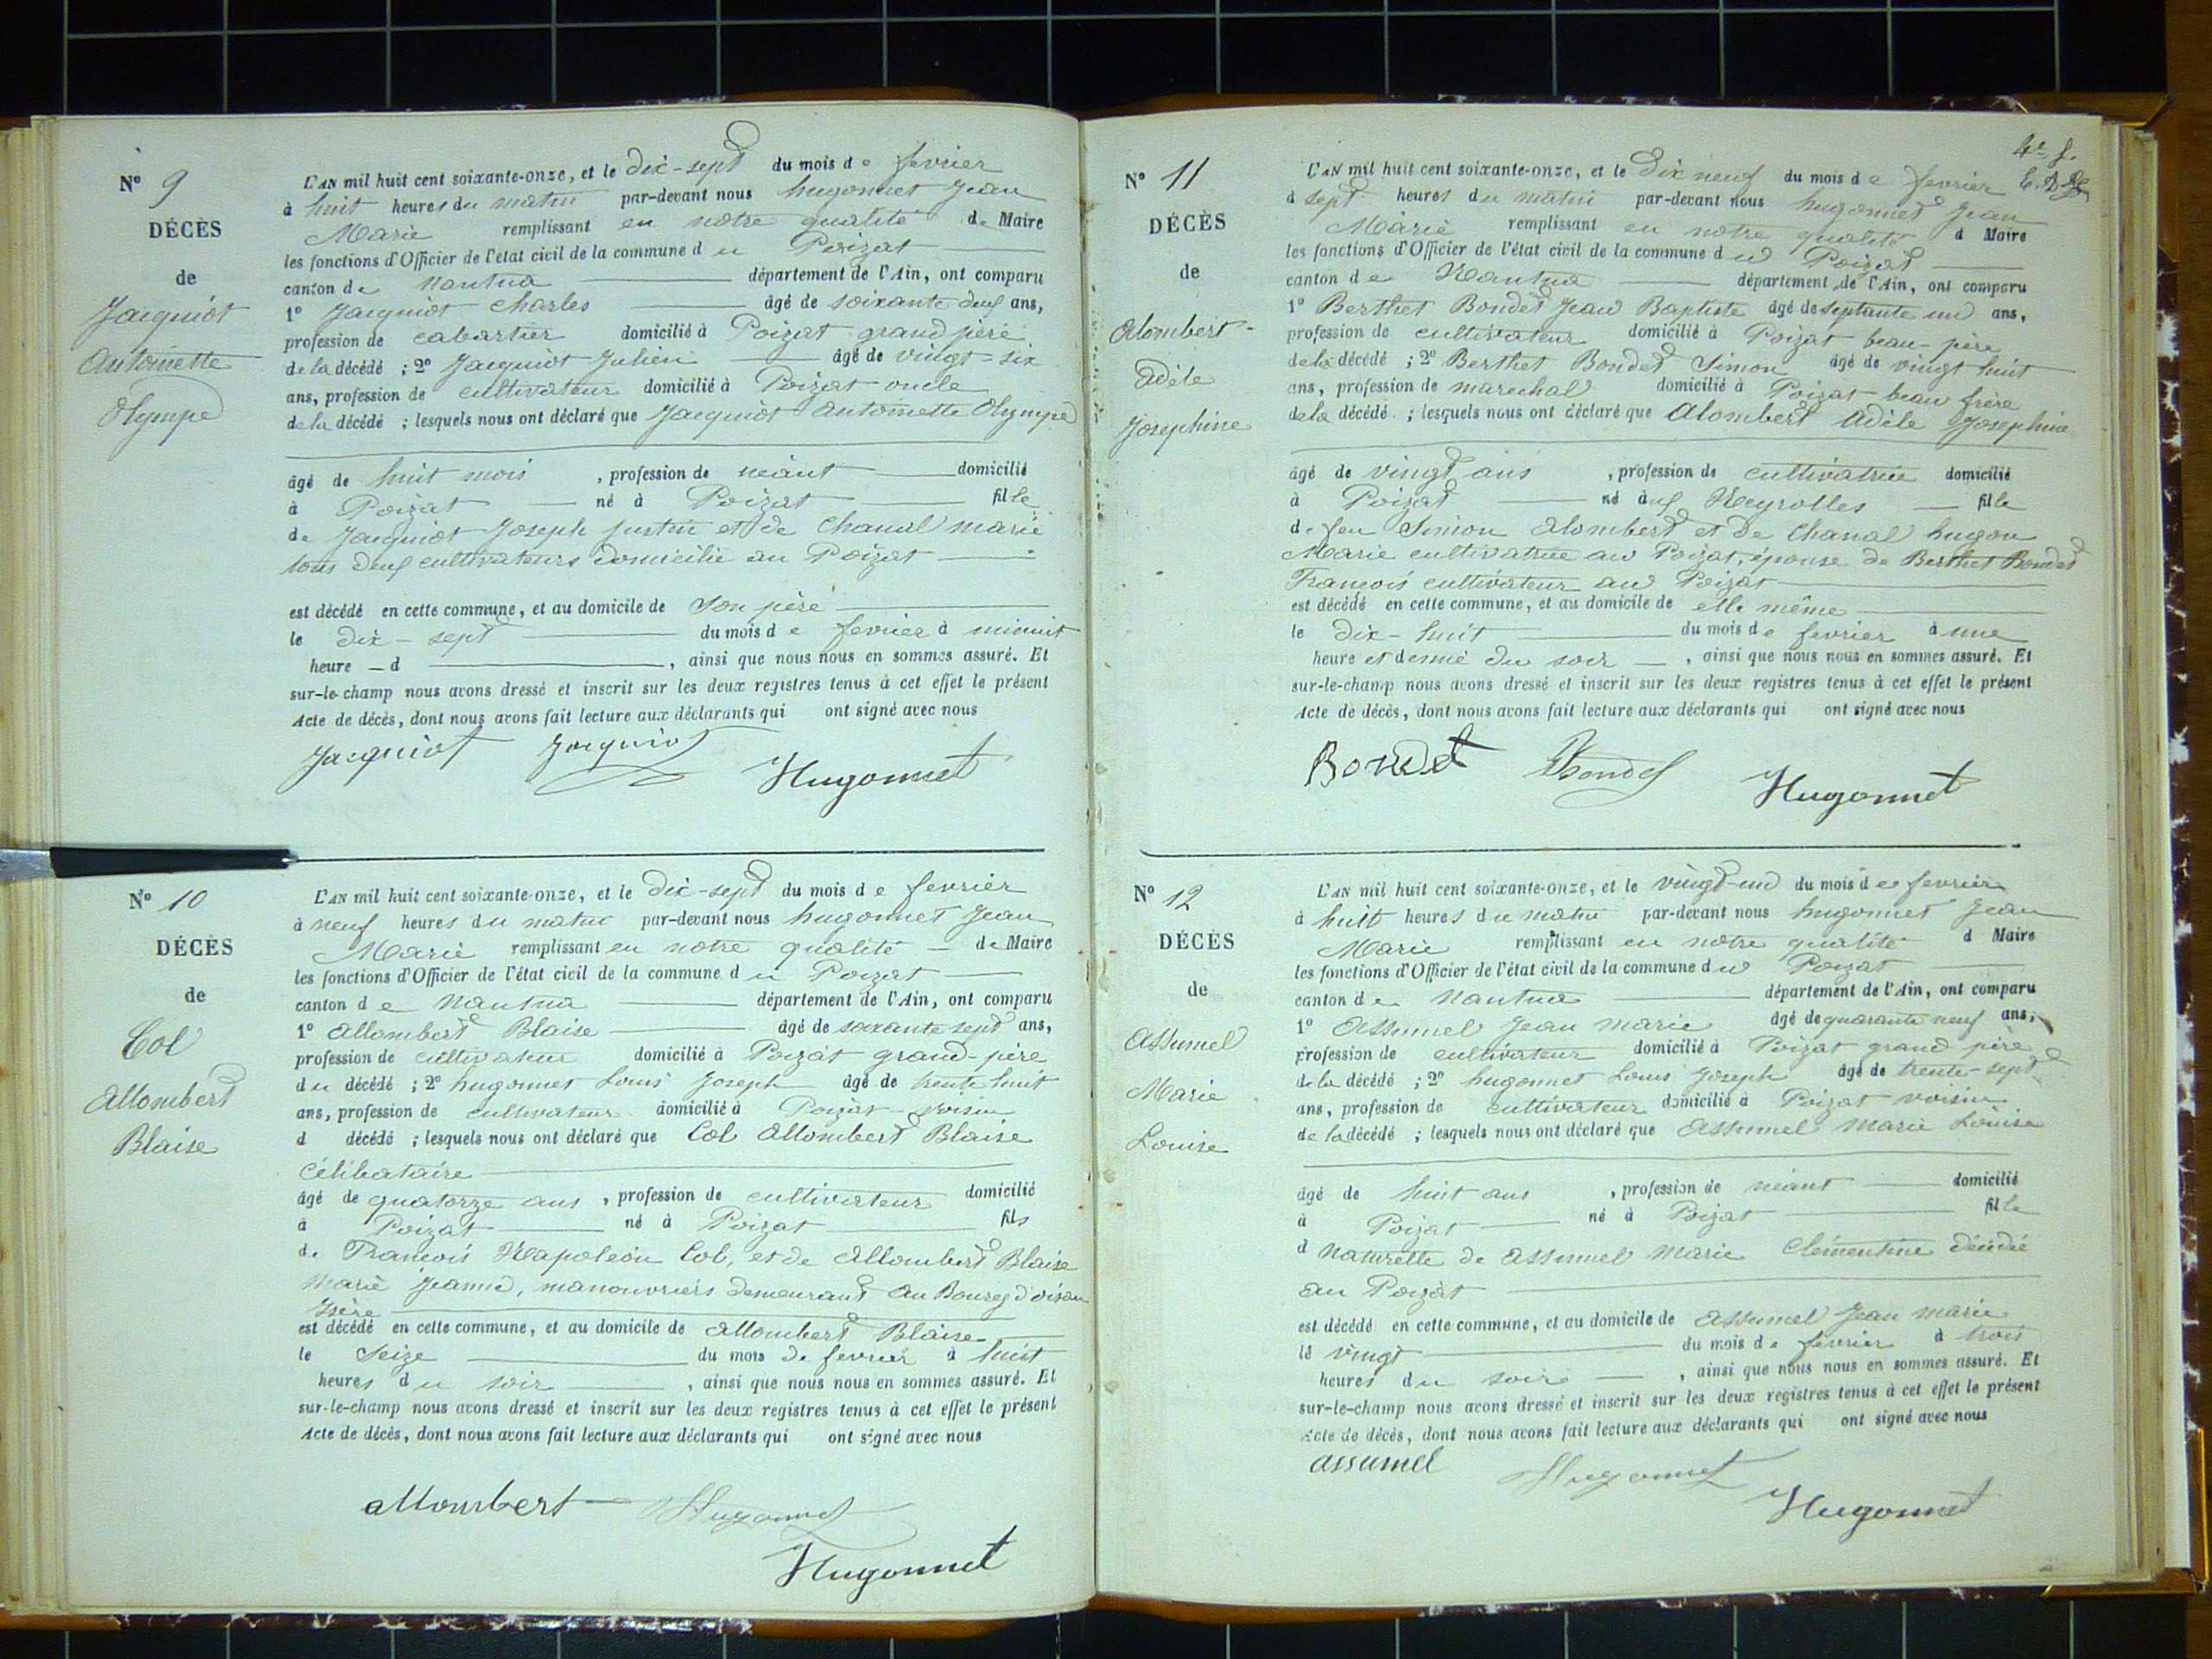 N° 9
DÉCÈS
de
Jacquiot
Antoinette
Olympe
L'AN mil huit cent soixante-onze, et le Dix-sept du mois de fevrier
à huit heures du matin par-devant nous hugonnet Jean
Marie remplissant en notre qualité de Maire
les fonctions d'Officier de l'état civil de la commune du Poizat
canton de Nantua département de l'Ain, ont comparu
1° Jacquiot Charles âgé de soixante deux ans,
profession de cabartier domicilié à Poizat grand père
de la décédé ; 2° Jacquiot Julien âgé de vingt-six
ans, profession de cultivateur domicilié à Poizat oncle
de la décédé ; lesquels nous ont déclaré que Jacquiot Antoinette Olympe
âgé de huit mois , profession de néant domicilié
à Poizat né à Poizat fille
de Jacquiot Joseph justin et de Chanal marie
tous deux cultivateurs domicilie au Poizat
est décédé en cette commune, et au domicile de Son père
le dix-sept du mois de fevrier à minuit
heure d , ainsi que nous nous en sommes assuré. Et
sur-le-champ nous avons dressé et inscrit sur les deux registres tenus à cet effet le présent
Acte de décès, dont nous avons fait lecture aux déclarants qui ont signé avec nous
Jacquiot Jacquiot Hugonnet
N° 10
DÉCÈS
de
Col
Allombert
Blaise
L'AN mil huit cent soixante-onze, et le Dix-sept du mois de fevrier
à neuf heures du matin par-devant nous hugonnet Jean
Marie remplissant en notre qualité de Maire
les fonctions d'Officier de l'état civil de la commune du Poizat
canton de Nantua département de l'Ain, ont comparu
1° Allombert Blaise âgé de soixante sept ans,
profession de cultivateur domicilié à Poizat grand-père
du décédé ; 2° hugonnet Louis Joseph âgé de trente huit
ans, profession de cultivateur domicilié à Poizat voisin
d décédé ; lesquels nous ont déclaré que Col Allombert Blaise
célibataire
âgé de quatorze ans , profession de cultivateur domicilié
à Poizat né à Poizat fils
de François Napoléon Col, et de Allombert Blaise
Marie Jeanne, manouvriers demeurant au Bourg d'oisan
Isère
est décédé en cette commune, et au domicile de Allombert Blaise
le Seize du mois de fevrier à huit
heures du soir , ainsi que nous nous en sommes assuré. Et
sur-le-champ nous avons dressé et inscrit sur les deux registres tenus à cet effet le présent
Acte de décès, dont nous avons fait lecture aux déclarants qui ont signé avec nous
allombert Hugonnet
Hugonnet
4e f.
N° 11
DÉCÈS
de
Alombert
Adèle
Josephine
L'AN mil huit cent soixante-onze, et le Dix neuf du mois de fevrier
à sept heures du matin par-devant nous hugonnet Jean
Marie remplissant en notre qualité d Maire
les fonctions d'Officier de l'état civil de la commune du Poizat
canton de Nantua département de l'Ain, ont comparu
1° Berthet Bondet Jean Baptiste âgé de septante un ans,
profession de cultivateur domicilié à Poizat beau-père
de la décédé ; 2° Berthet Bondet Simon âgé de vingt huit
ans, profession de marechal domicilié à Poizat beau frère
de la décédé ; lesquels nous ont déclaré que Alombert Adèle Josephine
âgé de vingt ans , profession de cultivatrice domicilié
à Poizat né aux Neyrolles fille
de feu Simon Alombert et de Chanal hugon
Marie cultivatrice au Poizat, épouse de Berthet Bondet
François cultivateur au Poizat
est décédé en cette commune, et au domicile de elle même
le dix-huit du mois de fevrier à une
heure et demie du soir , ainsi que nous nous en sommes assuré. Et
sur-le-champ nous avons dressé et inscrit sur les deux registres tenus à cet effet le présent
Acte de décès, dont nous avons fait lecture aux déclarants qui ont signé avec nous
Bondet Bondet Hugonnet
N° 12
DÉCÈS
de
Assumel
Marie
Louise
L'AN mil huit cent soixante-onze, et le vingt-un du mois de fevrier
à huit heures du matin par-devant nous hugonnet Jean
Marie remplissant en notre qualité d Maire
les fonctions d'Officier de l'état civil de la commune du Poizat
canton de Nantua département de l'Ain, ont comparu
1° Assumel Jean marie âgé de quarante neuf ans,
profession de cultivateur domicilié à Poizat grand père
de la décédé ; 2° hugonnet Louis Joseph âgé de trente-sept
ans, profession de cultivateur domicilié à Poizat voisin
de la décédé ; lesquels nous ont déclaré que Assumel Marie Louise
âgé de huit ans , profession de néant domicilié
à Poizat né à Poizat fille
d naturelle de Assumel Marie Clémentine décédée
au Poizat
est décédé en cette commune, et au domicile de Assumel Jean marie
le vingt du mois de fevrier à trois
heures du soir , ainsi que nous nous en sommes assuré. Et
sur-le-champ nous avons dressé et inscrit sur les deux registres tenus à cet effet le présent
Acte de décès, dont nous avons fait lecture aux déclarants qui ont signé avec nous
assumel Hugonnet
Hugonnet